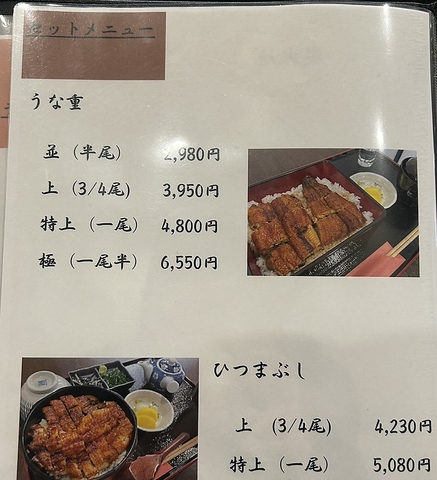 セットメニュー
うな重
並（半尾） 2,980円
上（3/4尾） 3,950円
特上（一尾） 4,800円
極（一尾半） 6,550円
ひつまぶし
上（3/4尾） 4,230円
特上（一尾） 5,080円